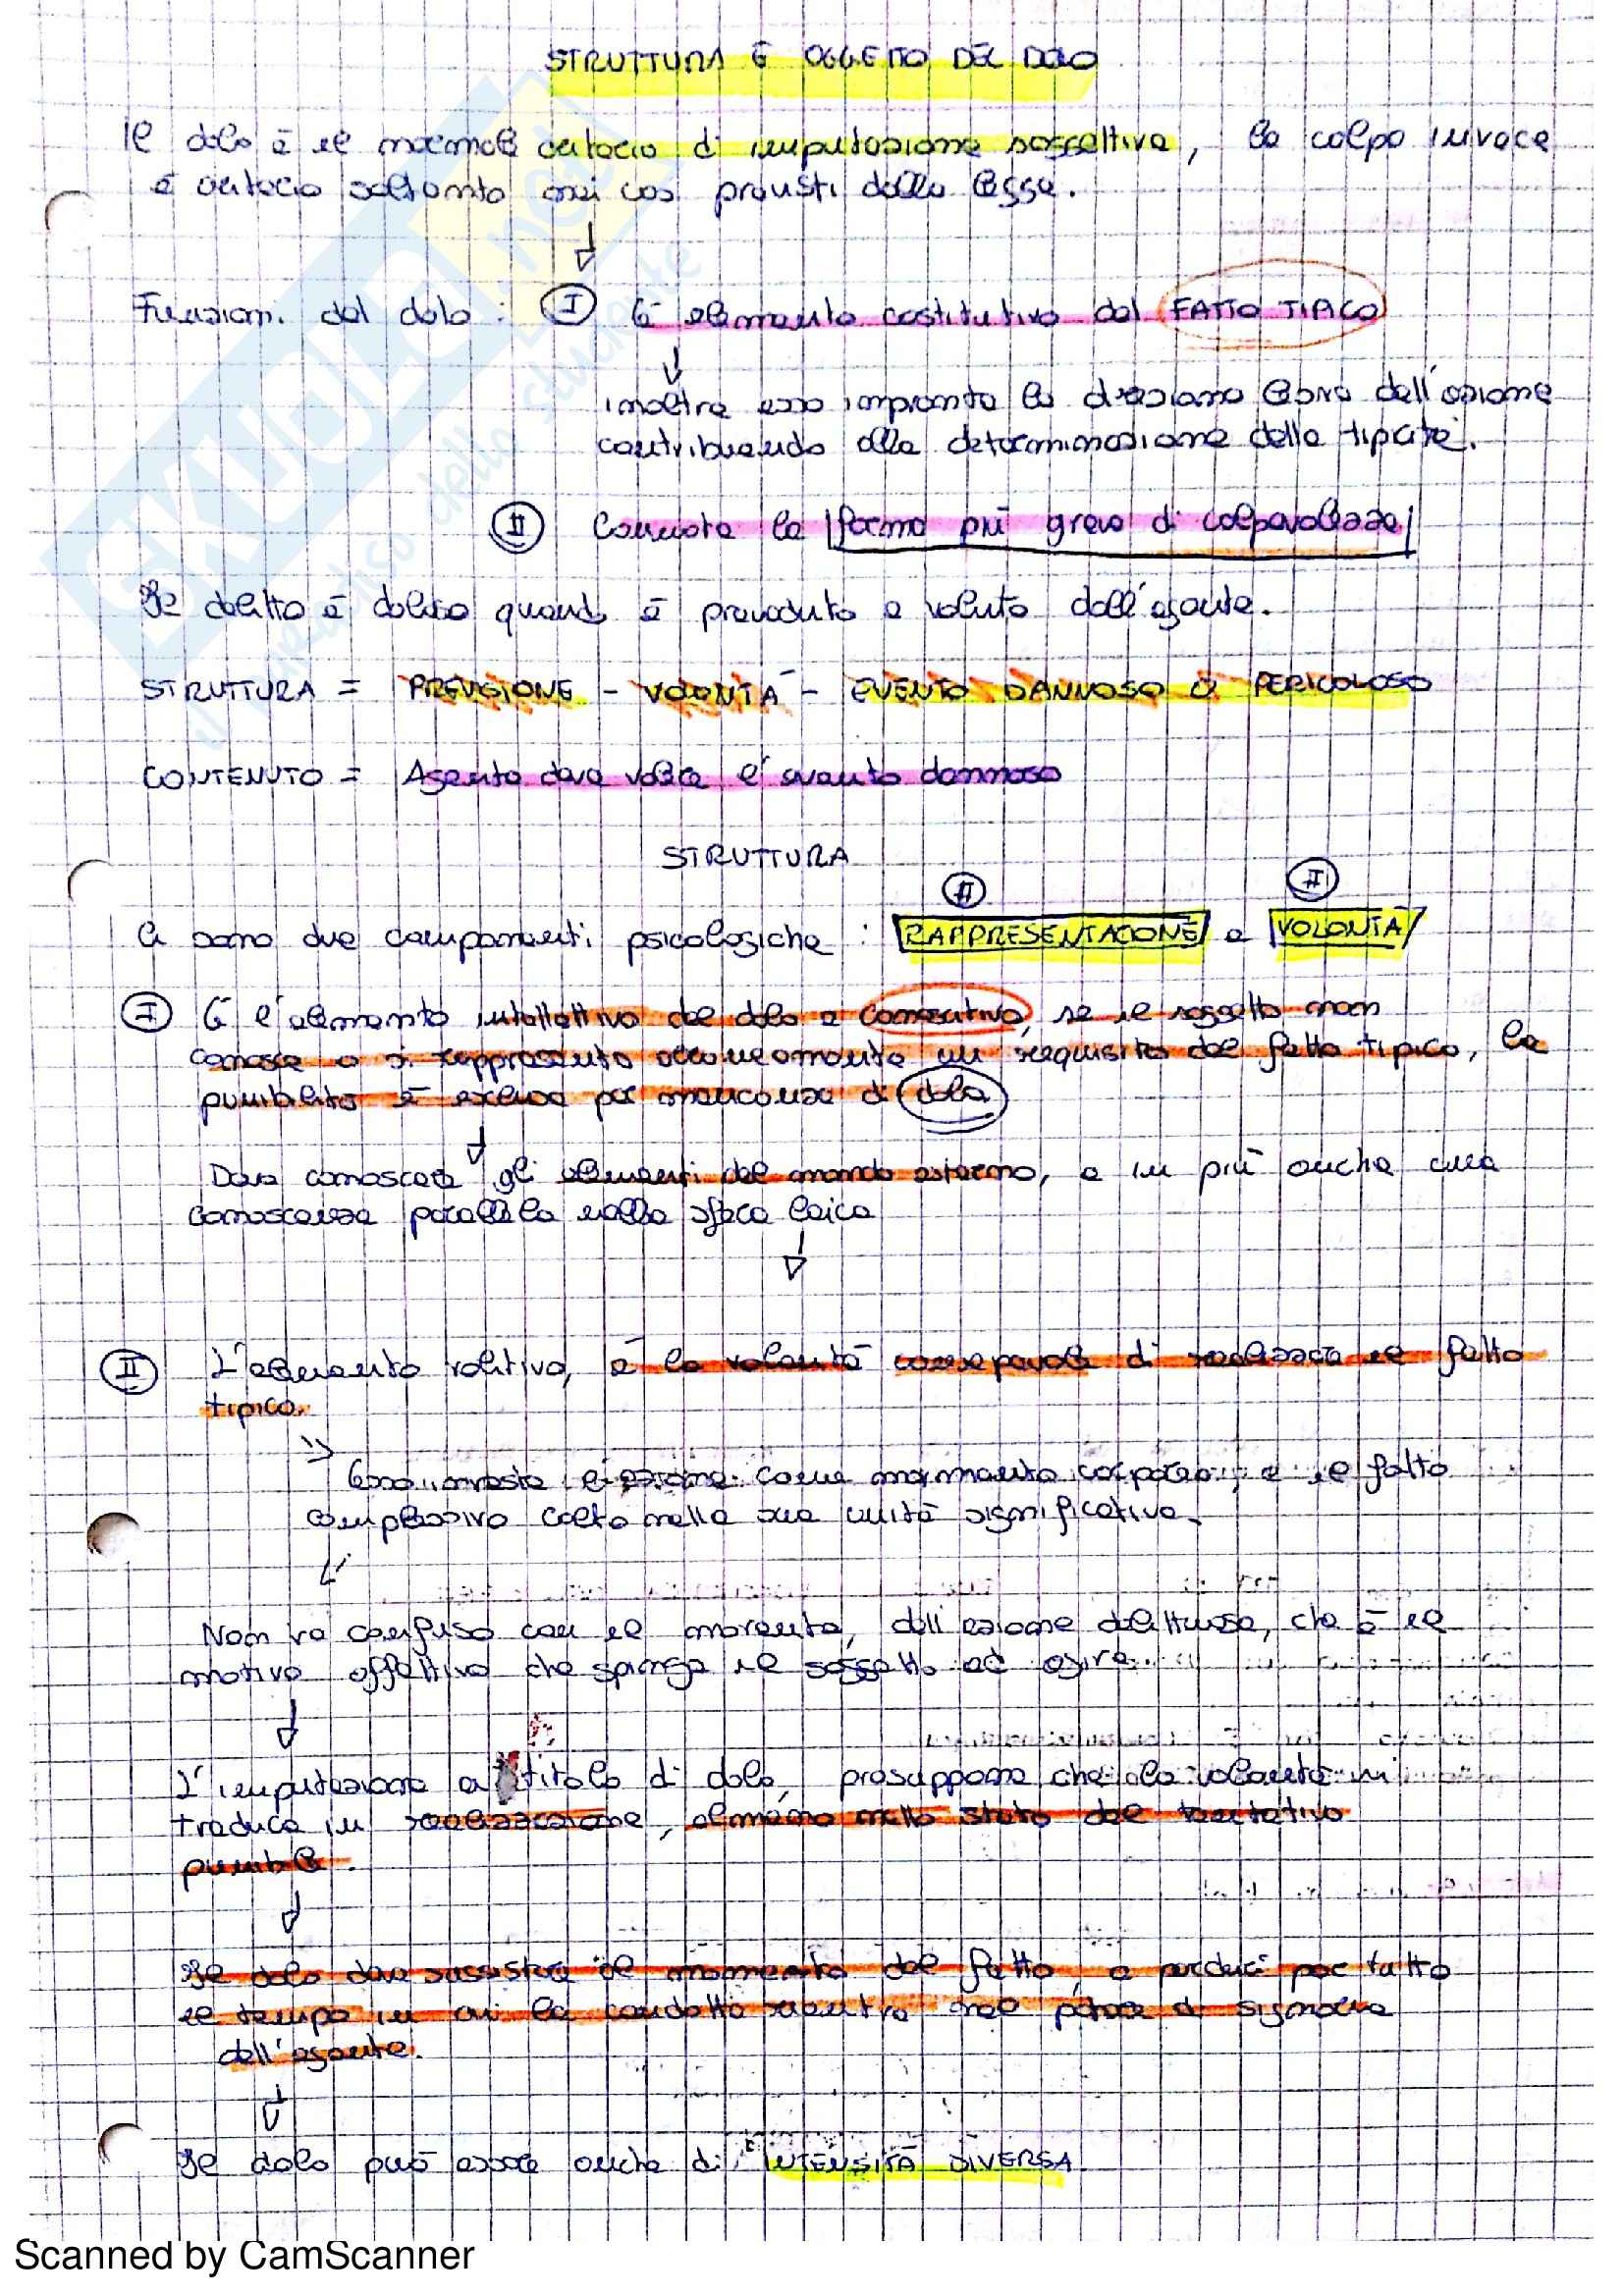 STRUTTURA E OGGETTO DEL DOLO
Il dolo è il normale criterio di imputazione soggettiva, la colpa invece
è criterio soltanto nei casi previsti dalla legge.
Funzioni del dolo : I È elemento costitutivo del FATTO TIPICO
inoltre esso impronta la direzione lesiva dell'azione
contribuendo alla determinazione della tipicità.
II Connota la forma più grave di colpevolezza
Il delitto è doloso quando è preveduto e voluto dall'agente.
STRUTTURA = PREVISIONE - VOLONTÀ - EVENTO DANNOSO O PERICOLOSO
CONTENUTO = Agente deve volere l'evento dannoso
STRUTTURA
I II
Ci sono due componenti psicologiche : RAPPRESENTAZIONE e VOLONTÀ
I È l'elemento intellettivo del dolo e conoscitivo, se il soggetto non
conosce o si rappresenta erroneamente un requisito del fatto tipico, la
punibilità è esclusa per mancanza di dolo
Deve conoscere gli elementi del mondo esterno, e in più anche una
conoscenza parallela nella sfera laica
II L'elemento volitivo, è la volontà consapevole di realizzare il fatto
tipico.
Esso investe l'azione come movimento corporeo, e il fatto
complessivo colto nella sua unità significativa.
Non va confuso con il movente, dell'azione delittuosa, che è il
motivo affettivo che spinge il soggetto ad agire.
L'imputazione a titolo di dolo, presuppone che la volontà si
traduca in realizzazione, almeno nello stato del tentativo
punibile.
Il dolo deve sussistere al momento del fatto, e perdurare per tutto
il tempo in cui la condotta rientra nel potere di signoria
dell'agente.
Il dolo può essere anche di INTENSITÀ DIVERSA
Scanned by CamScanner